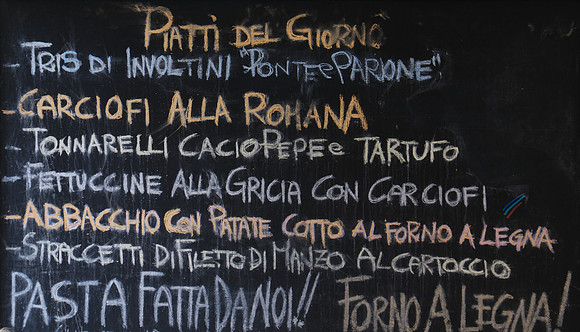 PIATTI DEL GIORNO
- TRIS DI INVOLTINI "PONTE e PARIONE"
- CARCIOFI ALLA ROMANA
- TONNARELLI CACIO PEPE e TARTUFO
- FETTUCCINE ALLA GRICIA CON CARCIOFI
- ABBACCHIO CON PATATE COTTO AL FORNO A LEGNA
- STRACCETTI DI FILETTO DI MANZO AL CARTOCCIO
PASTA FATTA DA NOI!! FORNO A LEGNA!